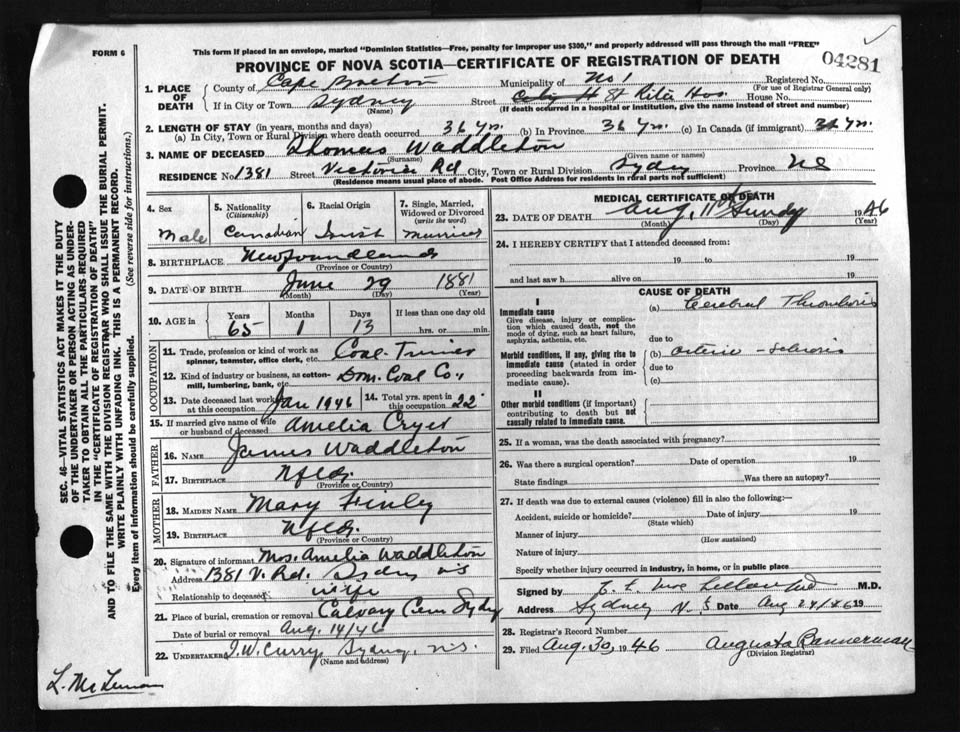 FORM 6
This form if placed in an envelope, marked "Dominion Statistics—Free, penalty for improper use $300," and properly addressed will pass through the mail "FREE"
PROVINCE OF NOVA SCOTIA—CERTIFICATE OF REGISTRATION OF DEATH
04281
1. PLACE OF DEATH
County of Cape Breton Municipality of No 1 Registered No.
(For use of Registrar General only)
If in City or Town Sydney Street City H St Rita Hos. House No.
(Name) (If death occurred in a hospital or institution, give the name instead of street and number)
2. LENGTH OF STAY (in years, months and days)
(a) In City, Town or Rural Division where death occurred 36 Yrs. (b) In Province 36 Yrs. (c) In Canada (if immigrant) 36 Yrs.
3. NAME OF DECEASED Thomas Waddleton
(Surname) (Given name or names)
RESIDENCE No. 1381 Street Victoria Rd City, Town or Rural Division Sydney Province NS
(Residence means usual place of abode. Post Office Address for residents in rural parts not sufficient)
4. Sex Male
5. Nationality (Citizenship) Canadian
6. Racial Origin Irish
7. Single, Married, Widowed or Divorced (write the word) Married
8. BIRTHPLACE Newfoundland
(Province or Country)
9. DATE OF BIRTH June 29 1881
(Month) (Day) (Year)
10. AGE in Years 65 Months 1 Days 13 If less than one day old hrs. or min.
OCCUPATION
11. Trade, profession or kind of work as spinner, teamster, office clerk, etc. Coal-Trimer
12. Kind of industry or business, as cotton-mill, lumbering, bank, etc. Dom. Coal Co.,
13. Date deceased last worked at this occupation Jan 1946
14. Total yrs. spent in this occupation 22
15. If married give name of wife or husband of deceased Amelia Cryer
FATHER
16. NAME James Waddleton
17. BIRTHPLACE Nfld.
(Province or Country)
MOTHER
18. MAIDEN NAME Mary Finly
19. BIRTHPLACE Nfld.
(Province or Country)
20. Signature of informant Mrs. Amelia Waddleton
Address 1381 V. Rd. Sydney NS
Relationship to deceased wife
21. Place of burial, cremation or removal Calvary Cem Sydney
Date of burial or removal Aug. 14/46
22. UNDERTAKER J.W. Curry, Sydney, N.S.
(Name and address)
MEDICAL CERTIFICATE OF DEATH
23. DATE OF DEATH Aug. 11th Sunday 1946
(Month) (Day) (Year)
24. I HEREBY CERTIFY that I attended deceased from:
19 to 19
and last saw h alive on 19
CAUSE OF DEATH
I
Immediate cause
Give disease, injury or complication which caused death, not the mode of dying, such as heart failure, asphyxia, asthenia, etc.
(a) Cerebral Thrombosis
due to
Morbid conditions, if any, giving rise to immediate cause (stated in order proceeding backwards from immediate cause).
(b) Arterio-sclerosis
due to
(c)
II
Other morbid conditions (if important) contributing to death but not causally related to immediate cause.
25. If a woman, was the death associated with pregnancy?
26. Was there a surgical operation? Date of operation 19
State findings Was there an autopsy?
27. If death was due to external causes (violence) fill in also the following:—
Accident, suicide or homicide? Date of injury 19
(State which)
Manner of injury
(How sustained)
Nature of injury
Specify whether injury occurred in industry, in home, or in public place
Signed by M.D.
Address Sydney N.S Date Aug 24/46 19
28. Registrar's Record Number
29. Filed Aug. 30, 1946 Augusta Bannerman
(Division Registrar)
SEC. 46—VITAL STATISTICS ACT MAKES IT THE DUTY
OF THE UNDERTAKER OR PERSON ACTING AS UNDER-
TAKER TO OBTAIN ALL THE PARTICULARS REQUIRED
IN THE "CERTIFICATE OF REGISTRATION OF DEATH"
AND TO FILE THE SAME WITH THE DIVISION REGISTRAR WHO SHALL ISSUE THE BURIAL PERMIT.
WRITE PLAINLY WITH UNFADING INK. THIS IS A PERMANENT RECORD.
Every item of information should be carefully supplied. (See reverse side for instructions.)